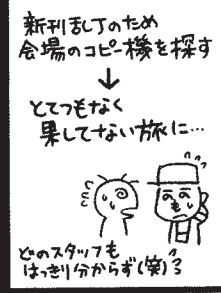 新刊乱丁のため
会場のコピー機を探す
↓
とてつもなく
果してない旅に…
どのスタッフも
はっきり分からず(笑)